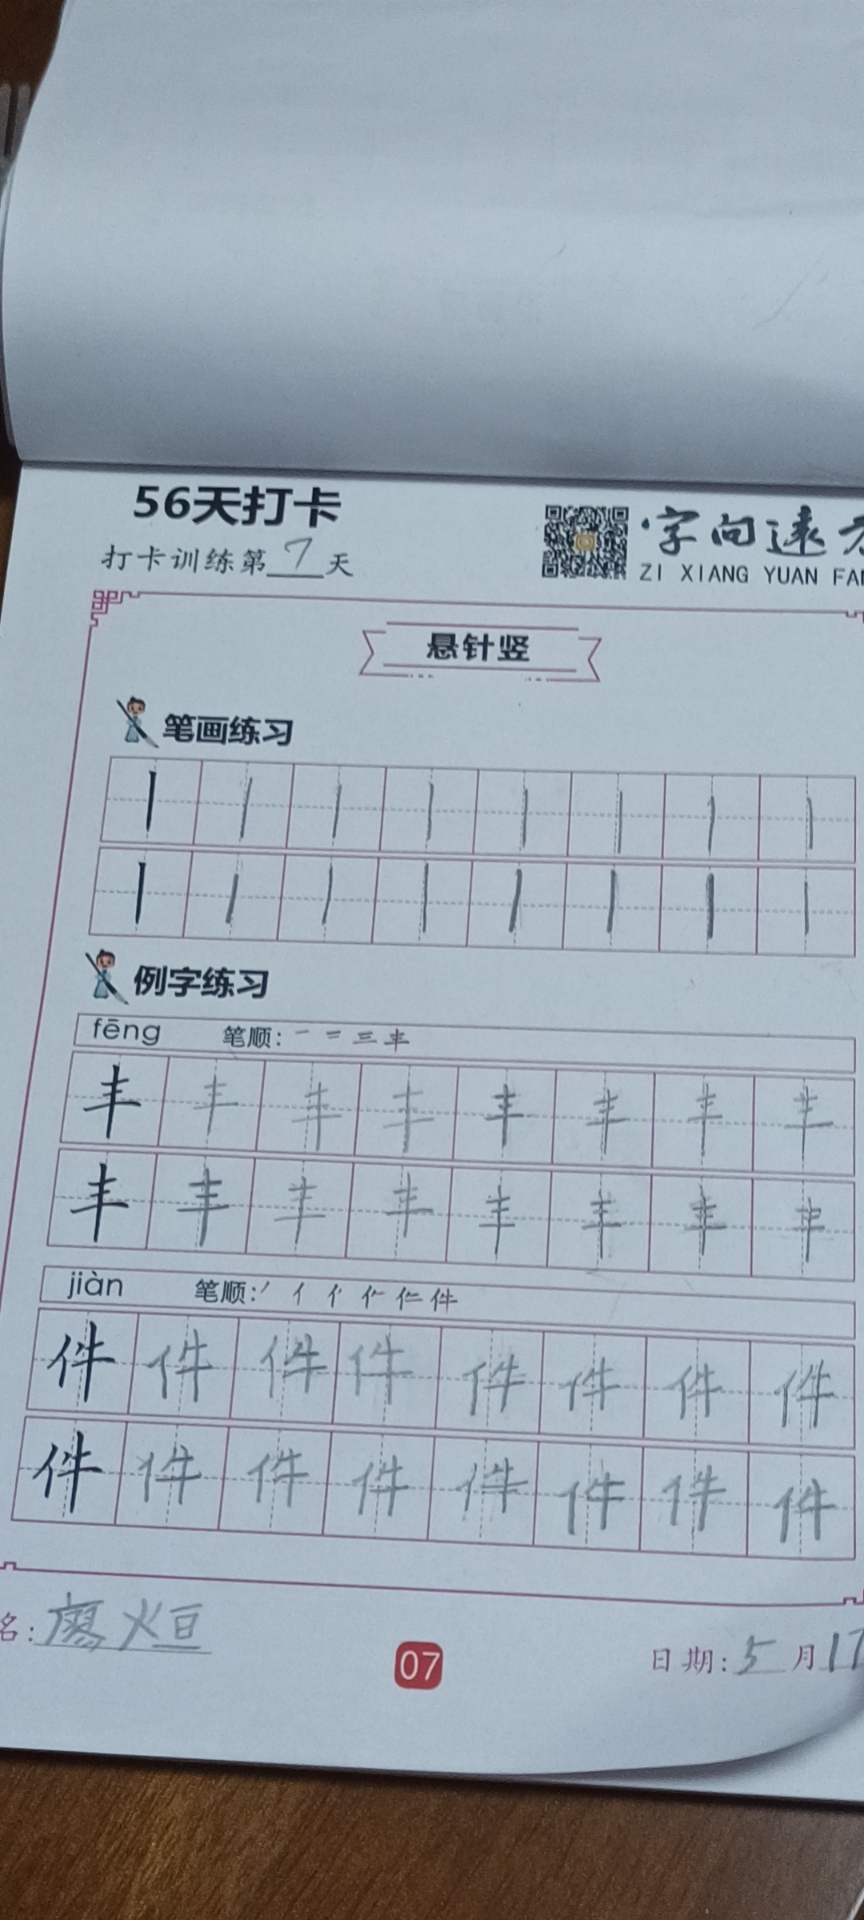 56天打卡
打卡训练第7天
字向远方
ZI XIANG YUAN FA
悬针竖
笔画练习
例字练习
fēng 笔顺: 一 二 三 丰
丰 丰 丰 丰 丰 丰 丰 丰
丰 丰 丰 丰 丰 丰 丰 丰
jiàn 笔顺: 件
件 件 件 件 件 件 件 件
件 件 件 件 件 件 件 件
名: 廖烜
07
日期: 5月17